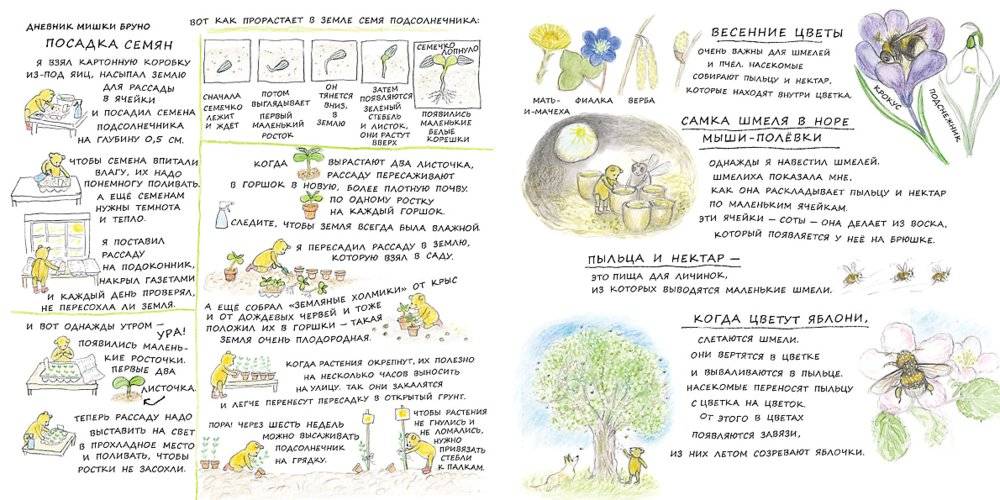 ДНЕВНИК МИШКИ БРУНО
ПОСАДКА СЕМЯН
Я ВЗЯЛ КАРТОННУЮ КОРОБКУ
ИЗ-ПОД ЯИЦ, НАСЫПАЛ ЗЕМЛЮ
ДЛЯ РАССАДЫ
В ЯЧЕЙКИ
И ПОСАДИЛ СЕМЕНА
ПОДСОЛНЕЧНИКА
НА ГЛУБИНУ 0,5 СМ.
ЧТОБЫ СЕМЕНА ВПИТАЛИ
ВЛАГУ, ИХ НАДО
ПОНЕМНОГУ ПОЛИВАТЬ.
А ЕЩЁ СЕМЕНАМ
НУЖНЫ ТЕМНОТА
И ТЕПЛО.
Я ПОСТАВИЛ
РАССАДУ
НА ПОДОКОННИК,
НАКРЫЛ ГАЗЕТАМИ
И КАЖДЫЙ ДЕНЬ ПРОВЕРЯЛ,
НЕ ПЕРЕСОХЛА ЛИ ЗЕМЛЯ.
И ВОТ ОДНАЖДЫ УТРОМ –
УРА!
ПОЯВИЛИСЬ МАЛЕНЬ-
КИЕ РОСТОЧКИ.
ПЕРВЫЕ ДВА
ЛИСТОЧКА.
ТЕПЕРЬ РАССАДУ НАДО
ВЫСТАВИТЬ НА СВЕТ
В ПРОХЛАДНОЕ МЕСТО
И ПОЛИВАТЬ, ЧТОБЫ
РОСТКИ НЕ ЗАСОХЛИ.
ВОТ КАК ПРОРАСТАЕТ В ЗЕМЛЕ СЕМЯ ПОДСОЛНЕЧНИКА:
СНАЧАЛА
СЕМЕЧКО
ЛЕЖИТ
И ЖДЕТ
ПОТОМ
ВЫГЛЯДЫВАЕТ
ПЕРВЫЙ
МАЛЕНЬКИЙ
РОСТОК
ОН
ТЯНЕТСЯ
ВНИЗ,
В
ЗЕМЛЮ
ЗАТЕМ
ПОЯВЛЯЮТСЯ
ЗЕЛЕНЫЙ
СТЕБЕЛЬ
И ЛИСТОК,
ОНИ РАСТУТ
ВВЕРХ
СЕМЕЧКО
ЛОПНУЛО
ПОЯВИЛИСЬ
МАЛЕНЬКИЕ
БЕЛЫЕ
КОРЕШКИ
КОГДА ВЫРАСТАЮТ ДВА ЛИСТОЧКА,
РАССАДУ ПЕРЕСАЖИВАЮТ
В ГОРШОК В НОВУЮ, БОЛЕЕ ПЛОТНУЮ ПОЧВУ.
ПО ОДНОМУ РОСТКУ
НА КАЖДЫЙ ГОРШОК.
СЛЕДИТЕ, ЧТОБЫ ЗЕМЛЯ ВСЕГДА БЫЛА ВЛАЖНОЙ.
Я ПЕРЕСАДИЛ РАССАДУ В ЗЕМЛЮ,
КОТОРУЮ ВЗЯЛ В САДУ.
А ЕЩЁ СОБРАЛ «ЗЕМЛЯНЫЕ ХОЛМИКИ» ОТ КРЫС
И ОТ ДОЖДЕВЫХ ЧЕРВЕЙ И ТОЖЕ
ПОЛОЖИЛ ИХ В ГОРШКИ – ТАКАЯ
ЗЕМЛЯ ОЧЕНЬ ПЛОДОРОДНАЯ.
КОГДА РАСТЕНИЯ ОКРЕПНУТ, ИХ ПОЛЕЗНО
НА НЕСКОЛЬКО ЧАСОВ ВЫНОСИТЬ
НА УЛИЦУ. ТАК ОНИ ЗАКАЛЯТСЯ
И ЛЕГЧЕ ПЕРЕНЕСУТ ПЕРЕСАДКУ В ОТКРЫТЫЙ ГРУНТ.
ПОРА! ЧЕРЕЗ ШЕСТЬ НЕДЕЛЬ
МОЖНО ВЫСАЖИВАТЬ
ПОДСОЛНЕЧНИК
НА ГРЯДКУ.
ЧТОБЫ РАСТЕНИЯ
НЕ ГНУЛИСЬ И
НЕ ЛОМАЛИСЬ,
НУЖНО
ПРИВЯЗАТЬ
СТЕБЛИ
К ПАЛКАМ.
МАТЬ-
И-МАЧЕХА
ФИАЛКА
ВЕРБА
ВЕСЕННИЕ ЦВЕТЫ
ОЧЕНЬ ВАЖНЫ ДЛЯ ШМЕЛЕЙ
И ПЧЕЛ. НАСЕКОМЫЕ
СОБИРАЮТ ПЫЛЬЦУ И НЕКТАР,
КОТОРЫЕ НАХОДЯТ ВНУТРИ ЦВЕТКА.
КРОКУС
ПОДСНЕЖНИК
САМКА ШМЕЛЯ В НОРЕ
МЫШИ-ПОЛЁВКИ
ОДНАЖДЫ Я НАВЕСТИЛ ШМЕЛЕЙ.
ШМЕЛИХА ПОКАЗАЛА МНЕ,
КАК ОНА РАСКЛАДЫВАЕТ ПЫЛЬЦУ И НЕКТАР
ПО МАЛЕНЬКИМ ЯЧЕЙКАМ.
ЭТИ ЯЧЕЙКИ – СОТЫ – ОНА ДЕЛАЕТ ИЗ ВОСКА,
КОТОРЫЙ ПОЯВЛЯЕТСЯ У НЕЁ НА БРЮШКЕ.
ПЫЛЬЦА И НЕКТАР –
ЭТО ПИЩА ДЛЯ ЛИЧИНОК,
ИЗ КОТОРЫХ ВЫВОДЯТСЯ МАЛЕНЬКИЕ ШМЕЛИ.
КОГДА ЦВЕТУТ ЯБЛОНИ,
СЛЕТАЮТСЯ ШМЕЛИ.
ОНИ ВЕРТЯТСЯ В ЦВЕТКЕ
И ВЫВАЛИВАЮТСЯ В ПЫЛЬЦЕ.
НАСЕКОМЫЕ ПЕРЕНОСЯТ ПЫЛЬЦУ
С ЦВЕТКА НА ЦВЕТОК.
ОТ ЭТОГО В ЦВЕТАХ
ПОЯВЛЯЮТСЯ ЗАВЯЗИ,
ИЗ НИХ ЛЕТОМ СОЗРЕВАЮТ ЯБЛОЧКИ.